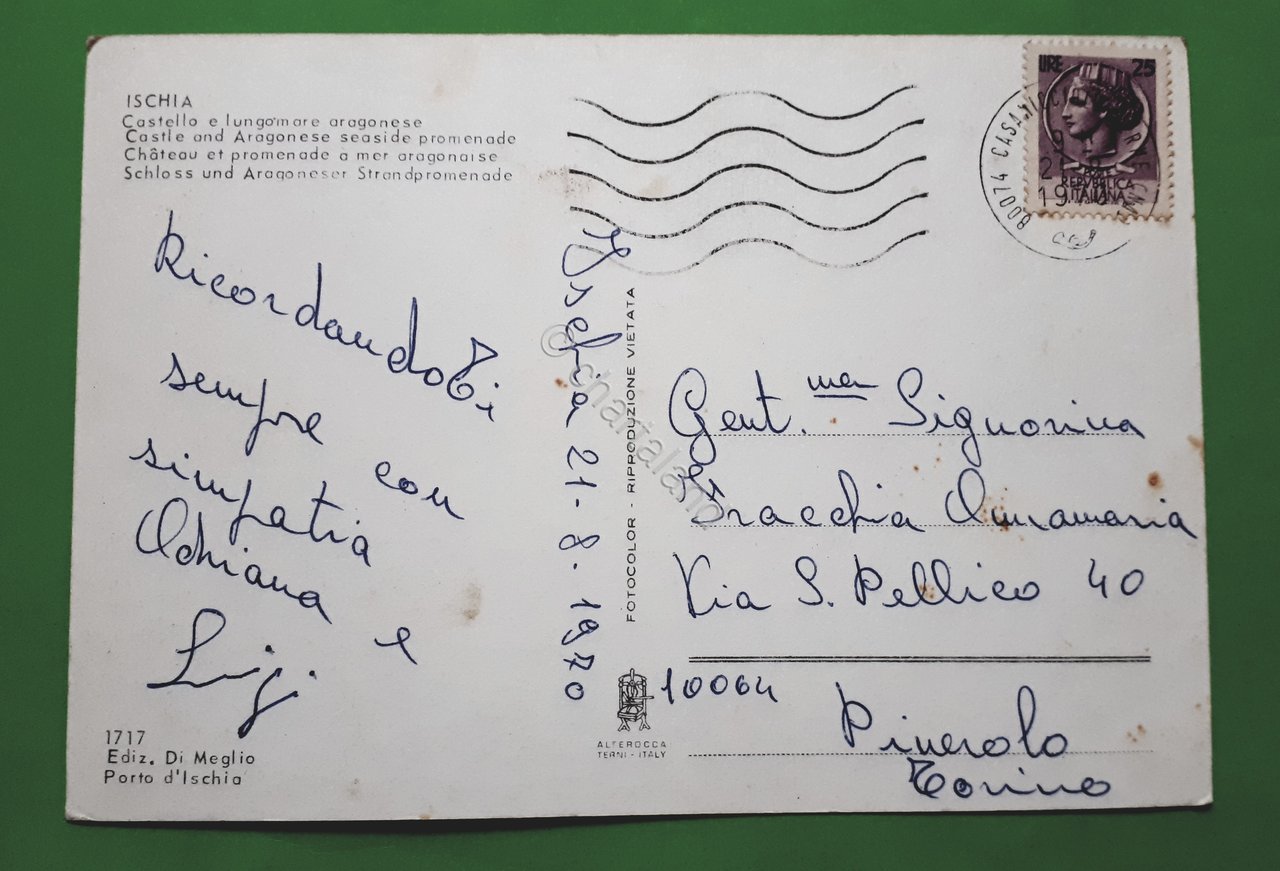 ISCHIA
Castello e lungomare aragonese
Castle and Aragonese seaside promenade
Château et promenade a mer aragonaise
Schloss und Aragoneser Strandpromenade
RicordandoTi
sempre con
simpatia
Adriana e
Luigi
1717
Ediz. Di Meglio
Porto d'Ischia
Ischia 21-8-1970
FOTOCOLOR - RIPRODUZIONE VIETATA
ALTEROCCA
TERNI - ITALY
LIRE 25
REPVBBLICA
ITALIANA
80074 CASAMICCIOLA TERME
21 8
19
Gent.ma Signorina
Fracchia Annamaria
Via S. Pellico 40
10064 Pinerolo
Torino